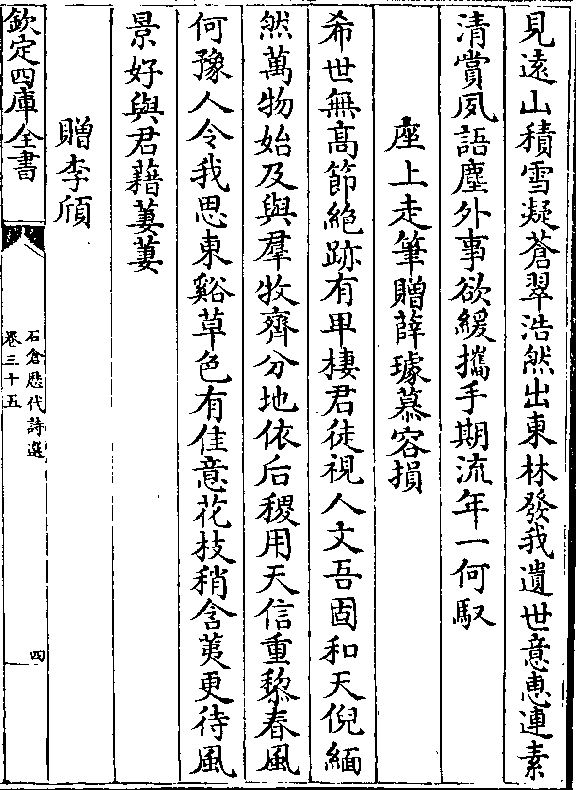 見遠山積雪凝蒼翠浩然出東林發我遺世意恵連素
清賞夙語塵外事欲緩攜手期流年一何馭
座上走筆贈薛璩慕容損
希世無高節絶跡有甲棲君徒視人文吾固和天倪緬
然萬物始及與羣牧齊分地依后稷用天信重黎春風
何豫人令我思東谿草色有佳意花枝稍含荑更待風
景好與君藉萋萋
贈李頎
欽定四庫全書
石倉歴代詩選
卷三十五
四